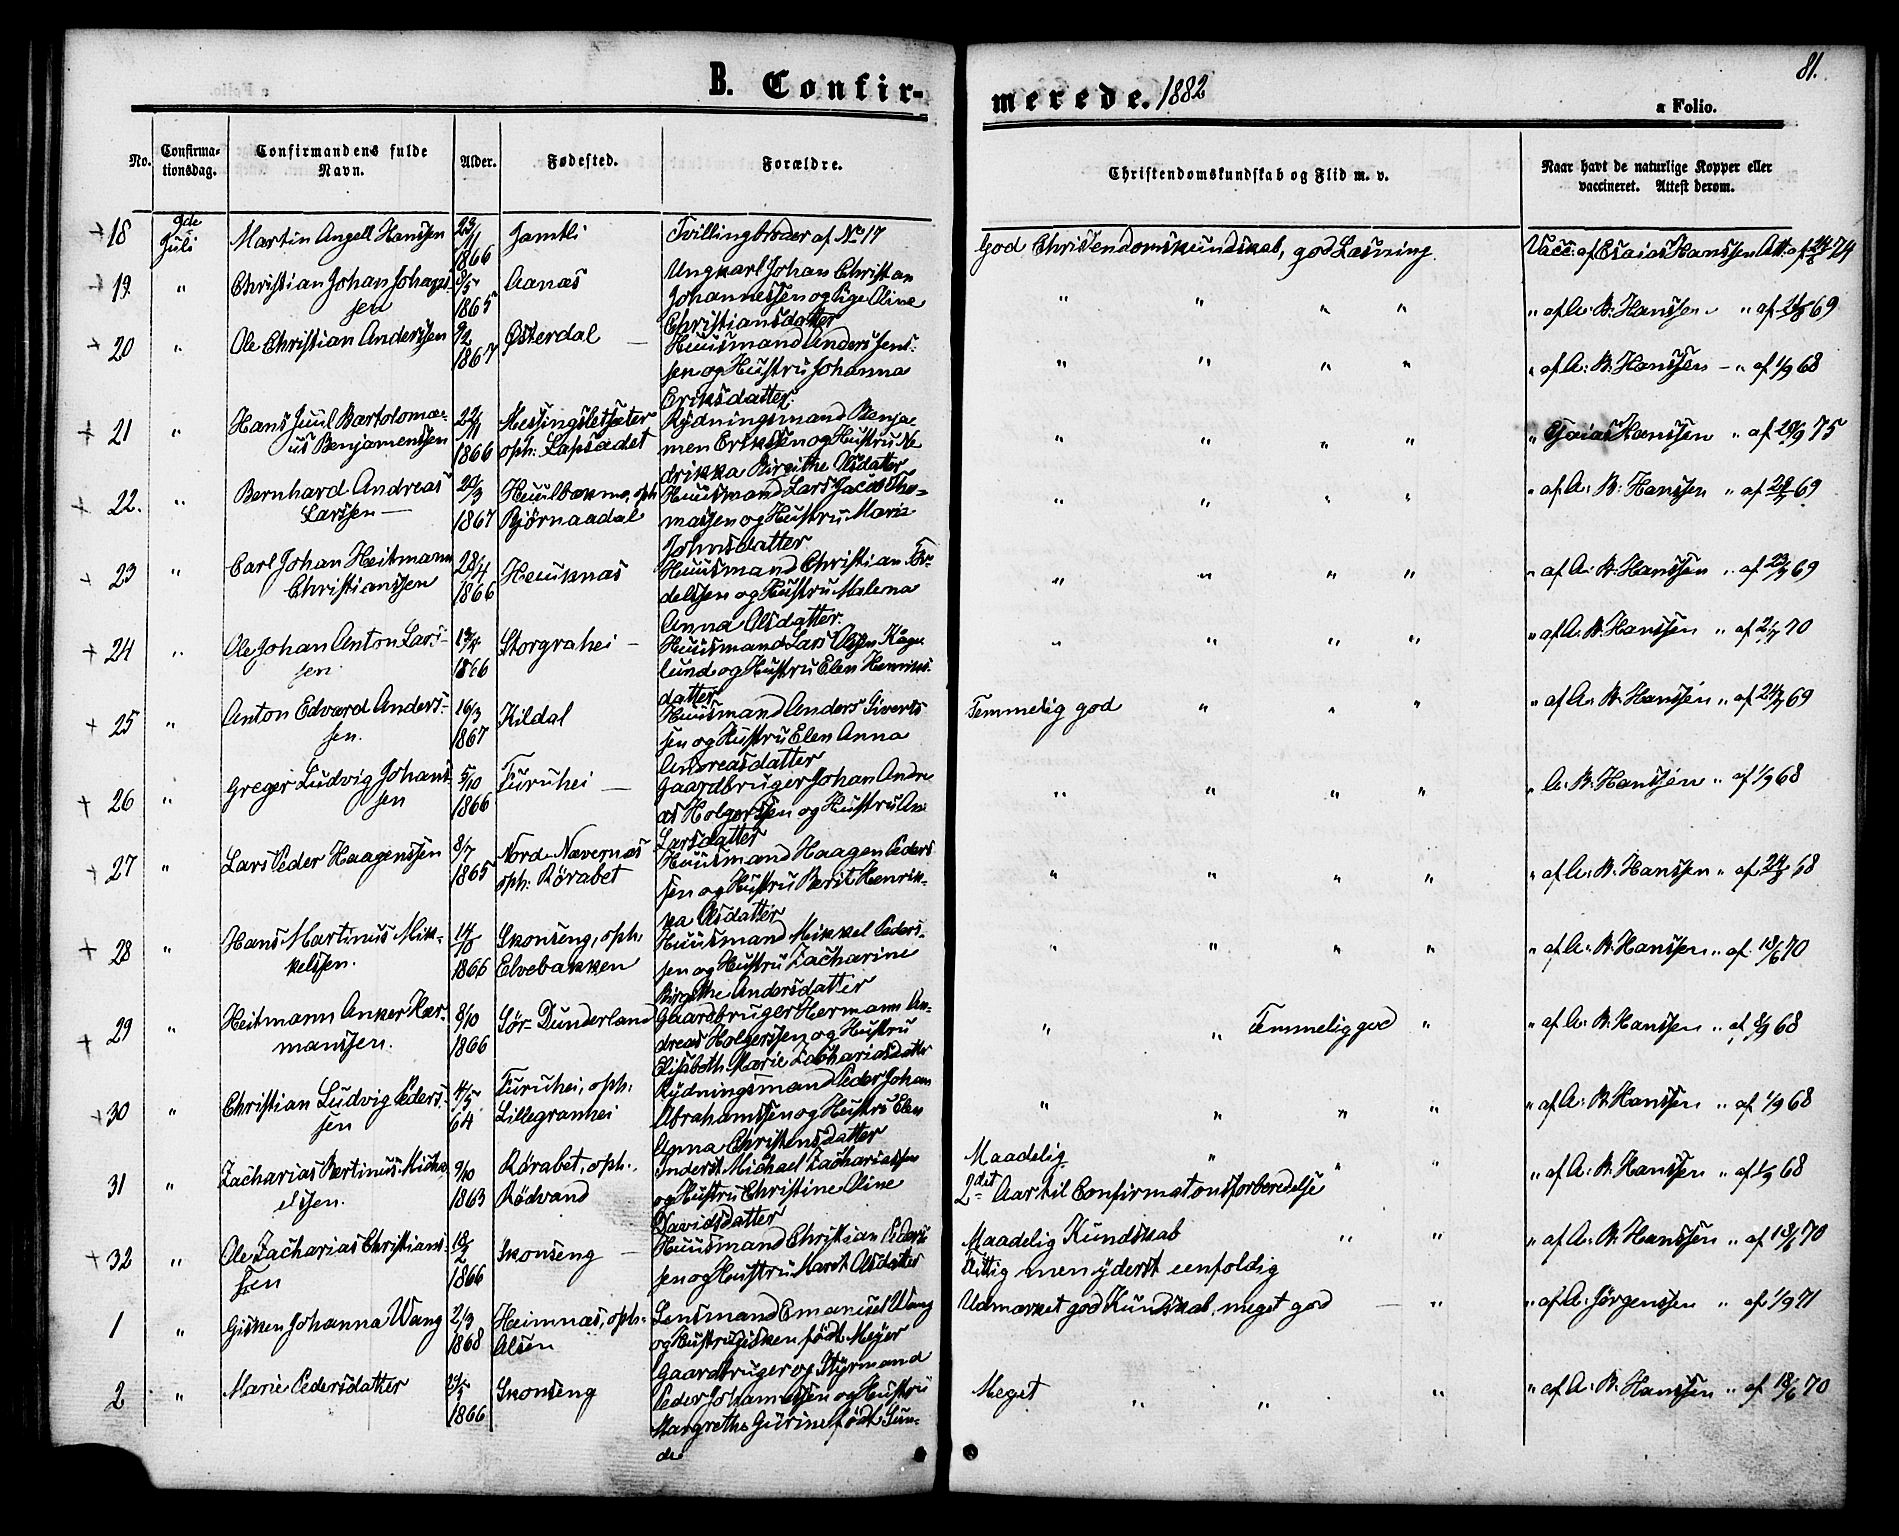 B. Confirmerede. 1882
81.
a Folio.
No.
Confirmationsdag.
Confirmandens fulde Navn.
Alder.
Fødested.
Forældre.
Christendomskundskab og Flid m. v.
Naar havt de naturlige Kopper eller vaccineret. Attest derom.
18 9de Juli Martin Angell Hanssen 23/11 1866 Jamtli Tvillingbroder af No 17 God Christendomskundskab, god Læsning. Vacc. af Esaias Hanssen Att. af 74
19. " Christian Johan Johanssen 8/5 1865 Aanæs Ungkarl Johan Christian Johannessen og Pige Oline Christiansdatter " " " " " af A. B. Hanssen " af 69
20 " Ole Christian Anderssen 9/2 1867 Østerdal Huusmand Anders Jenssen og Hustru Johanna Eriksdatter. " " " " " af A. B. Hanssen " af 1/9 68
21 " Hans Juul Bartolomæus Benjamenssen 22/11 1866 Messingsletsæter oph: Lapsædet Rydningsmand Benjamen Erikssen og Hustru Nedrikka Birgithe Olsdatter " " " " " Esaias Hanssen " af 75
22. " Bernhard Andreas Larssen 1867 Heuulbakmo, oph Bjørnaadal Huusmand Lars Jacob Thomassen og Hustru Maria Johnsdatter " " " " " af A. B. Hanssen " af 69
23 " Carl Johan Heitmann Christianssen 28/4 1866 Heuuknæs Huusmand Christian Fredelssen og Hustru Malena Anna Olsdatter. " " " " " af A. B. Hanssen " af 69
24 " Ole Johan Anton Larssen. 1866 Storgrahei Huusmand Lars Olssen Kaagelund og Hustru Elen Henriksdatter " " " " " af A. B. Hanssen " af 70
25 " Anton Edvard Anderssen. 16/3 1867 Kildal Huusmand Anders Sivertssen og Hustru Elen Anna Andreasdatter Temmelig god " " " " af A. B. Hanssen " af 69
26 " Greger Ludvig Johanssen 5/10 1866 Furuhei Gaardbruger Johan Andreas Holgerssen og Hustru An: Larsdatter " " " " " A. B. Hanssen " af 1/9 68
27 " Lars Peder Haagenssen 8/7 1865 Nord-Nævernæs oph: Rörabet Huusmand Haagen Pederssen og Hustru Berit Henrikka Olsdatter " " " " " af A. B. Hanssen " af 68
28 " Hans Martinus Mikkelssen. 1866 Skonseng, oph, Elvebakken Huusmand Mikkel Pederssen og Hustru Zacharine Birgithe Andersdatter " " " " " af A. B. Hanssen " af 18/6 70
29 " Heitmann Anker Hermanssen. 8/10 1866 Sör-Dunderland Gaardbruger Hermann Andreas Holgerssen og Hustru Elisabeth Marie Zachariasdatter " " Temmelig god " " af A. B. Hanssen " af 68
30 " Christian Ludvig Pederssen 4/5 64 Furuhei, oph: Lillegranhei Rydningsmand Peder Johan Abrahamssen og Hustru Elen Anna Christensdatter " " " " " af A. B. Hanssen " af 1/9 68
31 " Zacharias Bertinus Michaelssen. 9/10 1863 Rörabet, oph: Rödvand Inderst Michael Zachariassen og Hustru Christine Oline Davidsdatter Maadelig " " "
2det Aar til Confirmationsforberedelse " af A. B. Hanssen " af 68
32 " Ole Zacharias Christianssen 18/2 1866 Skonseng Huusmand Christian Pederssen og Hustru Maret Olsdatter Maadelig Kundskab " "
Flittig men yderst eenfoldig " af A. B. Hanssen " af 18/6 70
1 " Gisken Johanna Wang 2/3 1868 Heimnæs, oph. Alsen Lensmand Emanuel Wang og Hustru Gisken født Meyer Udmærket god Kundskab, meget god " " af A. Jørgenssen " af 1/9 71
2 " Marie Pedersdatter 1866 Skonseng Gaardbruger og Styrmand Peder Johannessen og Hustru Margrethe Gurine født Sunde Meget " " " " af A. B. Hanssen " af 18/6 70